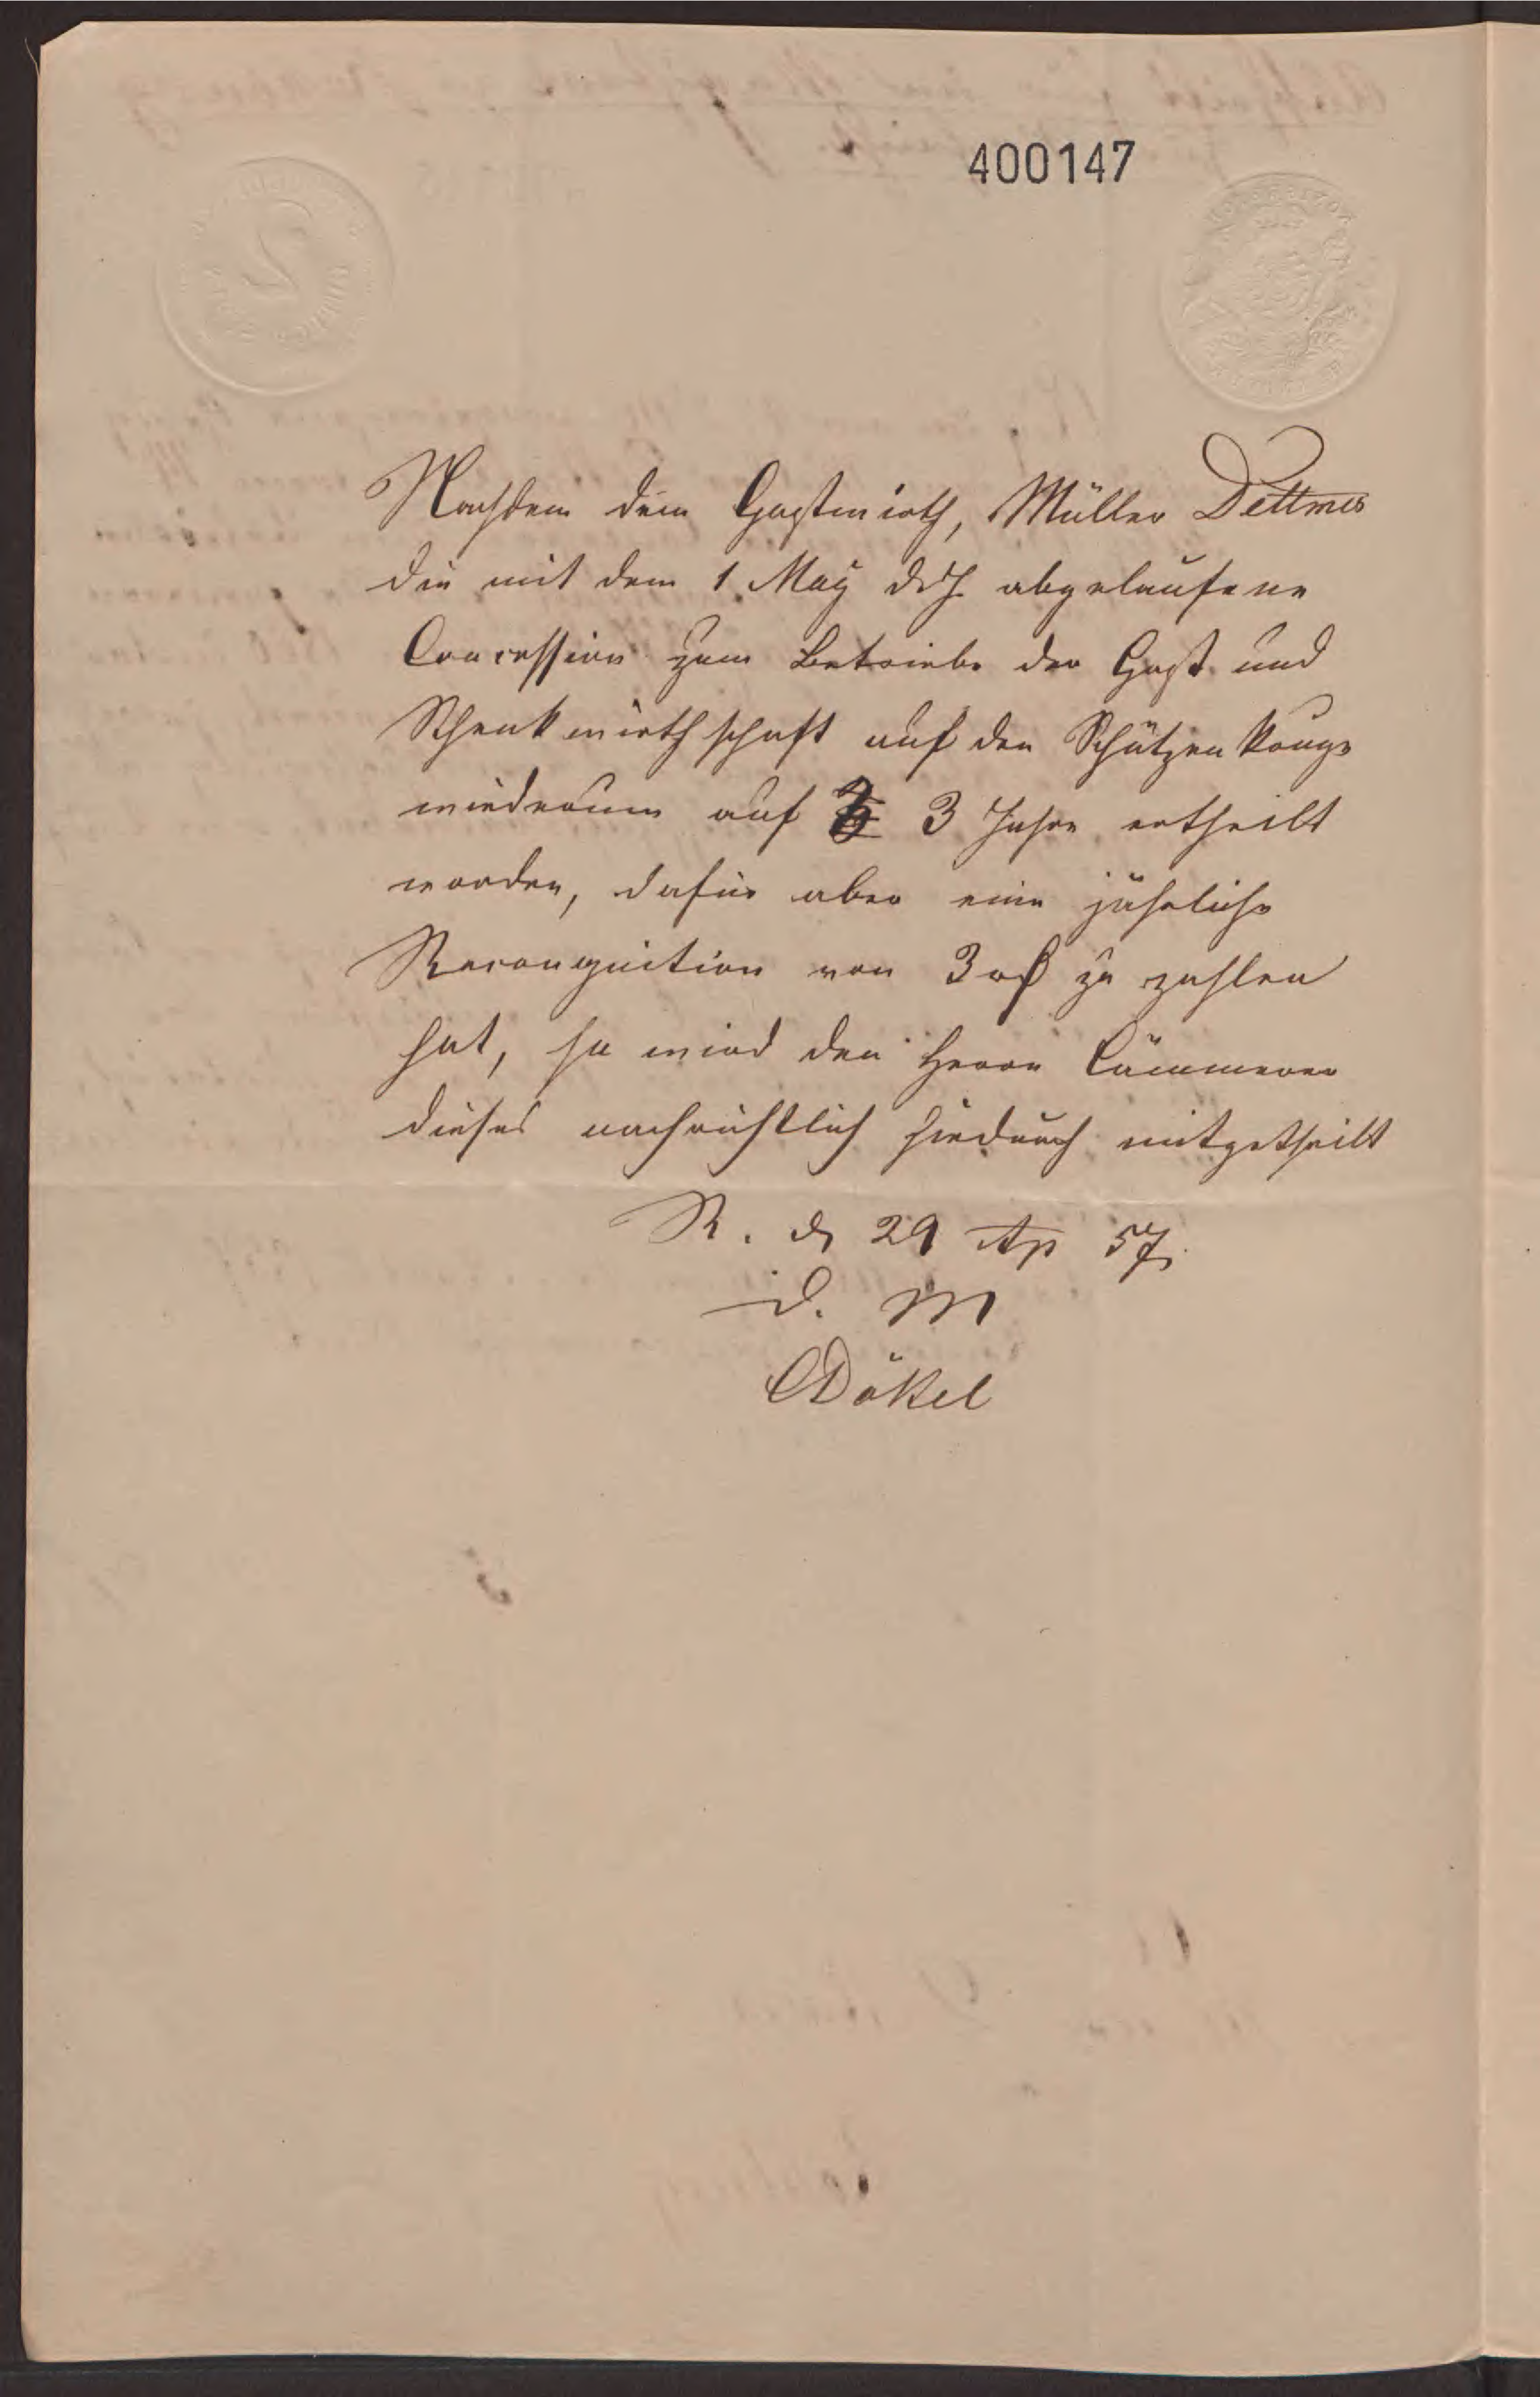 400147
Nachdem dem Gastwirth, Müller Dettmer
die mit dem 1. May d. J. abgelaufene
Concession zum Betriebe der Gast und
Schenkwirthschaft auf den
wiederum auf 3 Jahre ertheilt
worden, dafür aber eine jährliche
Recongnition von 3 ₰ zu zahlen
hat, so wird den Herrn Cämmerer
dieses nachrichtlich hiedurch mitgetheilt
R. d. 29 Ap 57.
D. M